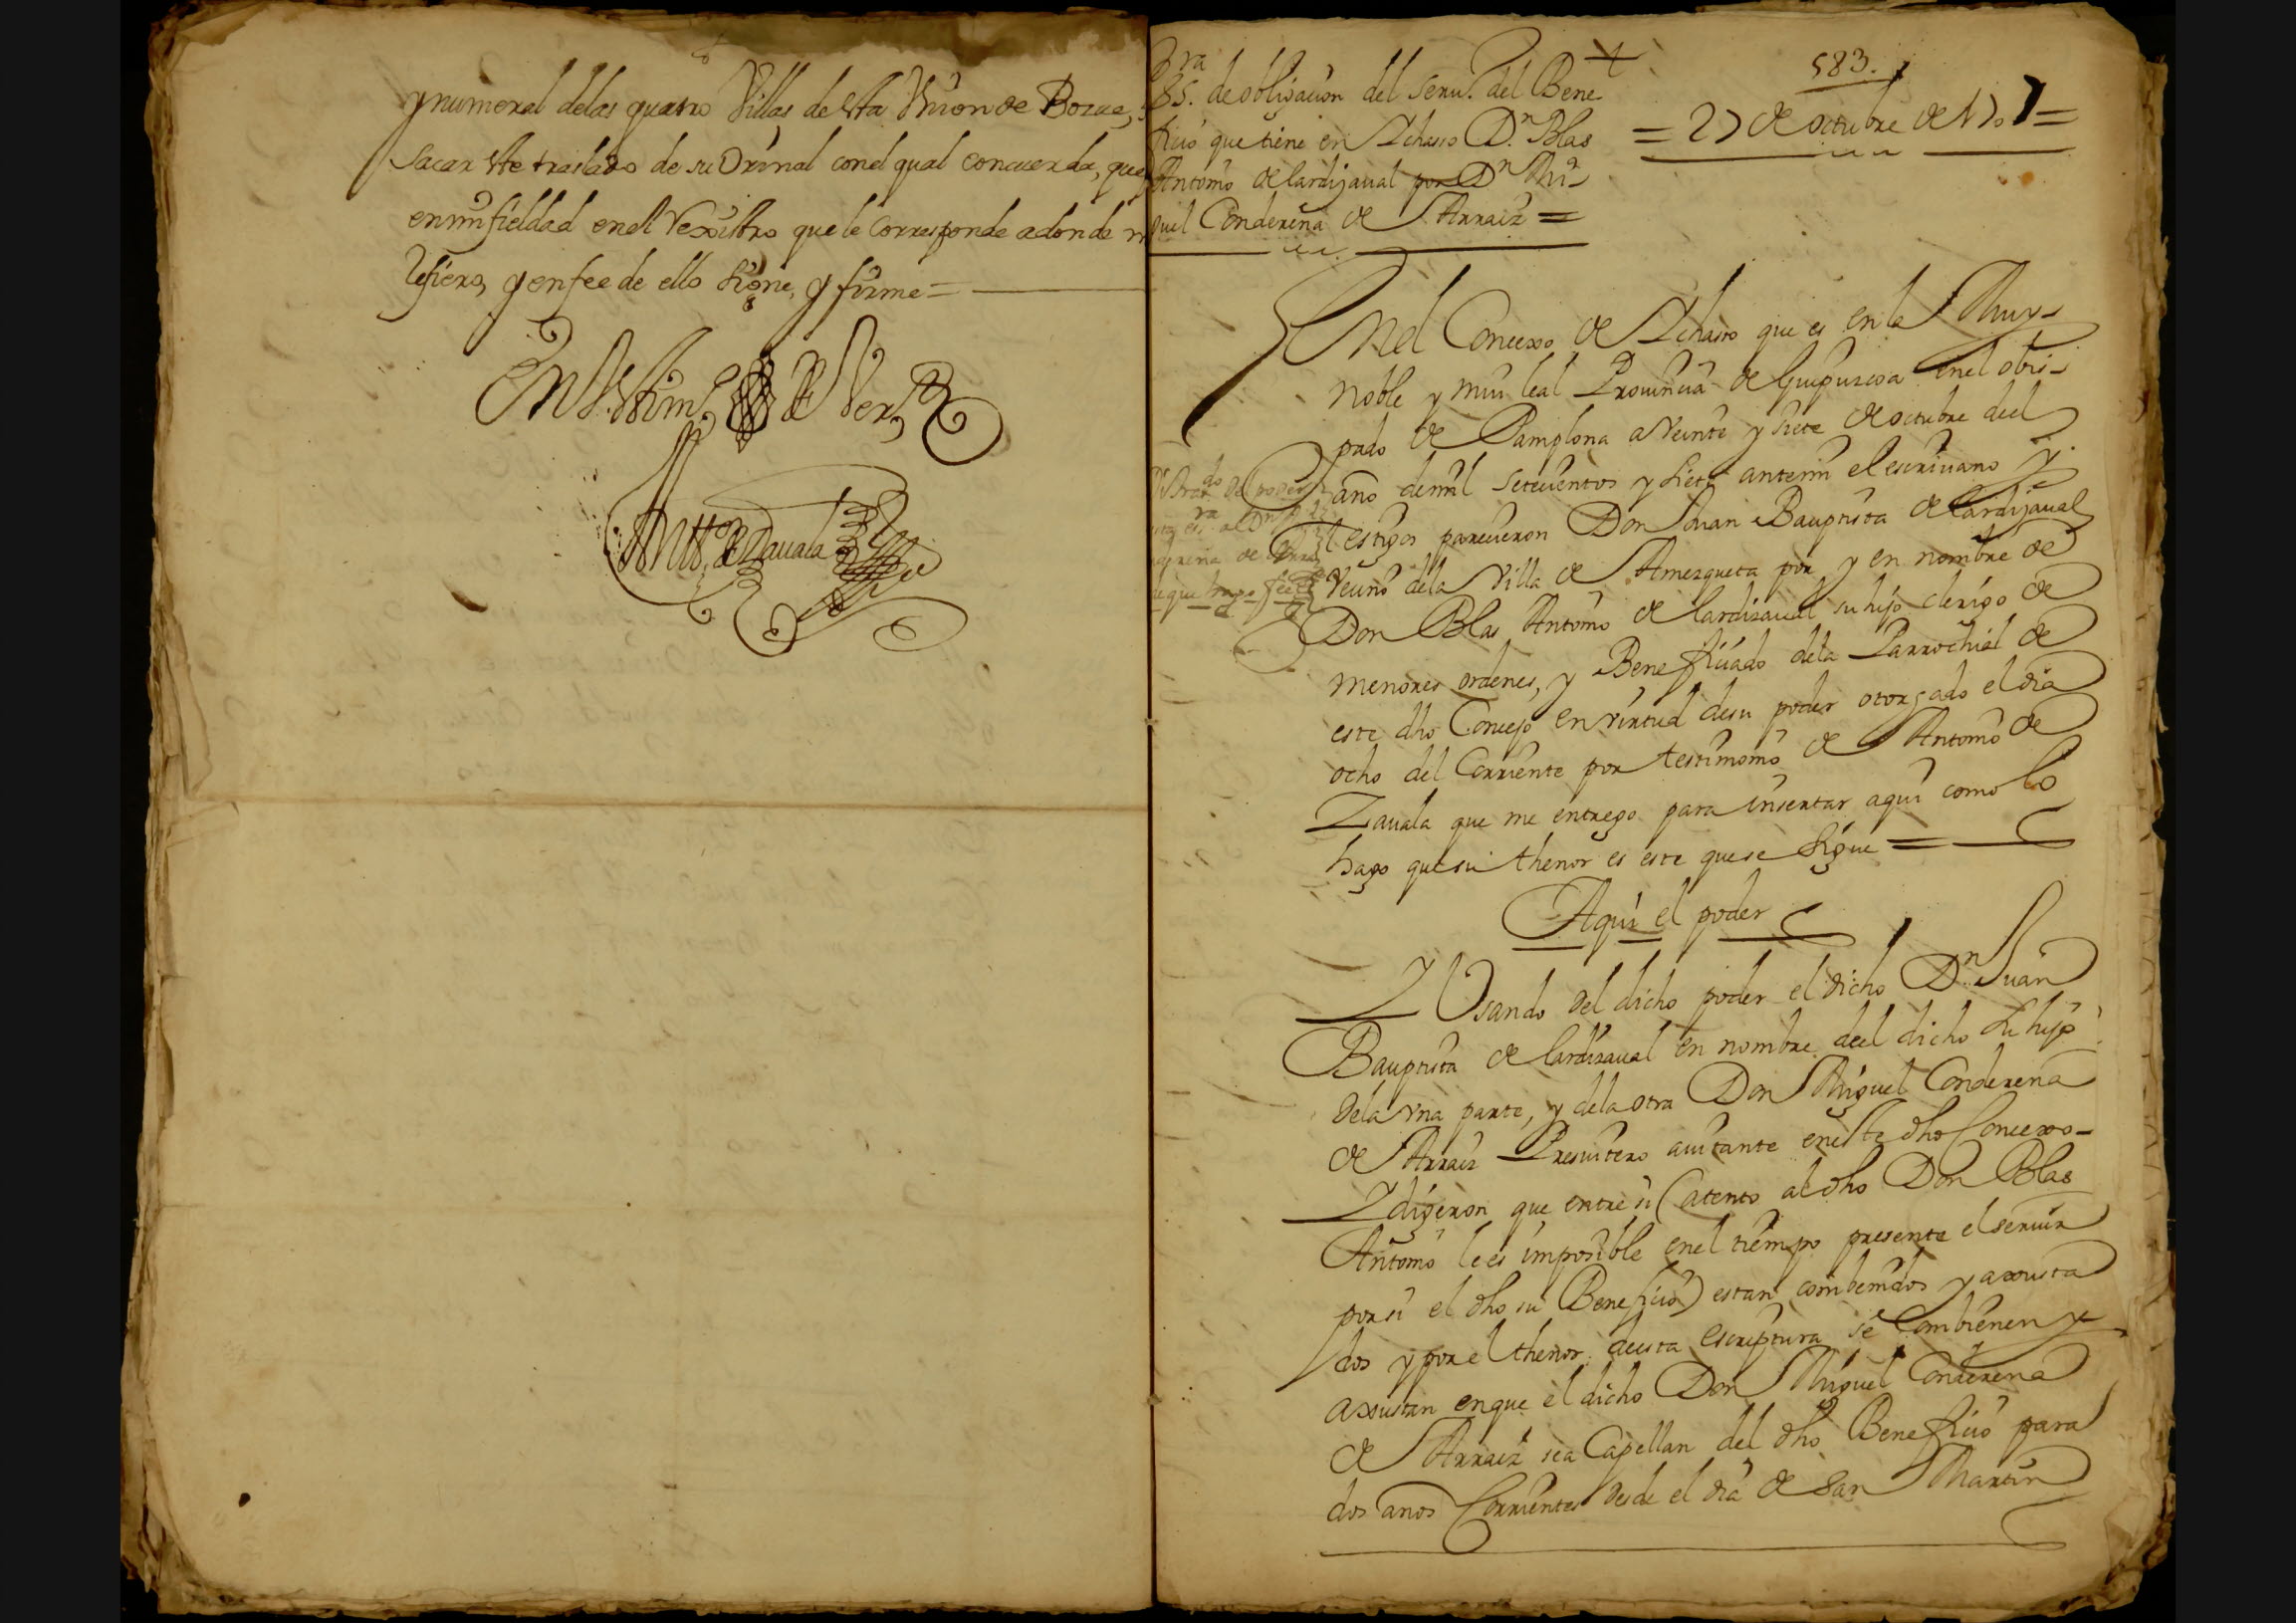 y numeral delas quatro Villas de esta Union de Bozue,
Sacar este traslado de su Orinal con el qual concuerda, que
en mi fieldad en el Rexistro que le Corresponde adonde
Refiero, y en fee de ello signe, y firme =
En testim.º de Ver.
Antt.º de Zauala
583.
ra
Es. de obligacion del Seru.º del Bene
ficio que tiene en Ichasso D.n Blas
Antonio de lardizaual por D.n Mi-
guel Conderena de Arraiz =
= 27 de octubre de 1707 =
En el Concexo de Ichasso que es en la Muy
noble y muy leal Prouincia de Guipuzcoa en el obis-
pado de Pamplona a Veinte y siete de octubre del
año de mil setecientos y siete ante mi el escriuano y
testigos parecieron Don Juan Bauptista de lardizaual
Vecino dela Villa de Amezqueta por y en nombre de
Don Blas Antonio de lardizaual su hijo clerigo de
menores ordenes, y Beneficiado dela Parrochial de
este dho Concejo en virtud de su poder otorgado el dia
ocho del Corriente por testimonio de Antonio de
Zauala que me entrego para insertar aqui como lo
hago que su thenor es este que se sigue =
do del poder
ra
de Arra
que hago fee
Aqui el poder
Y Usando del dicho poder el dicho D.n Juan
Bauptista de lardizaual en nombre del dicho su hijo
dela vna parte, y dela otra Don Miguel Conderena
de Arraiz Presuitero auitante en este dho Concexo
Y dixeron que entre si (atento al dho Don Blas
Antonio le es imposible en el tiempo presente el seruir
por si el dho su Beneficio) estan combenidos y axusta
dos y por el thenor de esta escriptura se Combienen y
axustan en que el dicho Don Miguel Conderena
de Arraiz sea Capellan del dho Beneficio para
dos años Corrientes desde el dia de San Martin